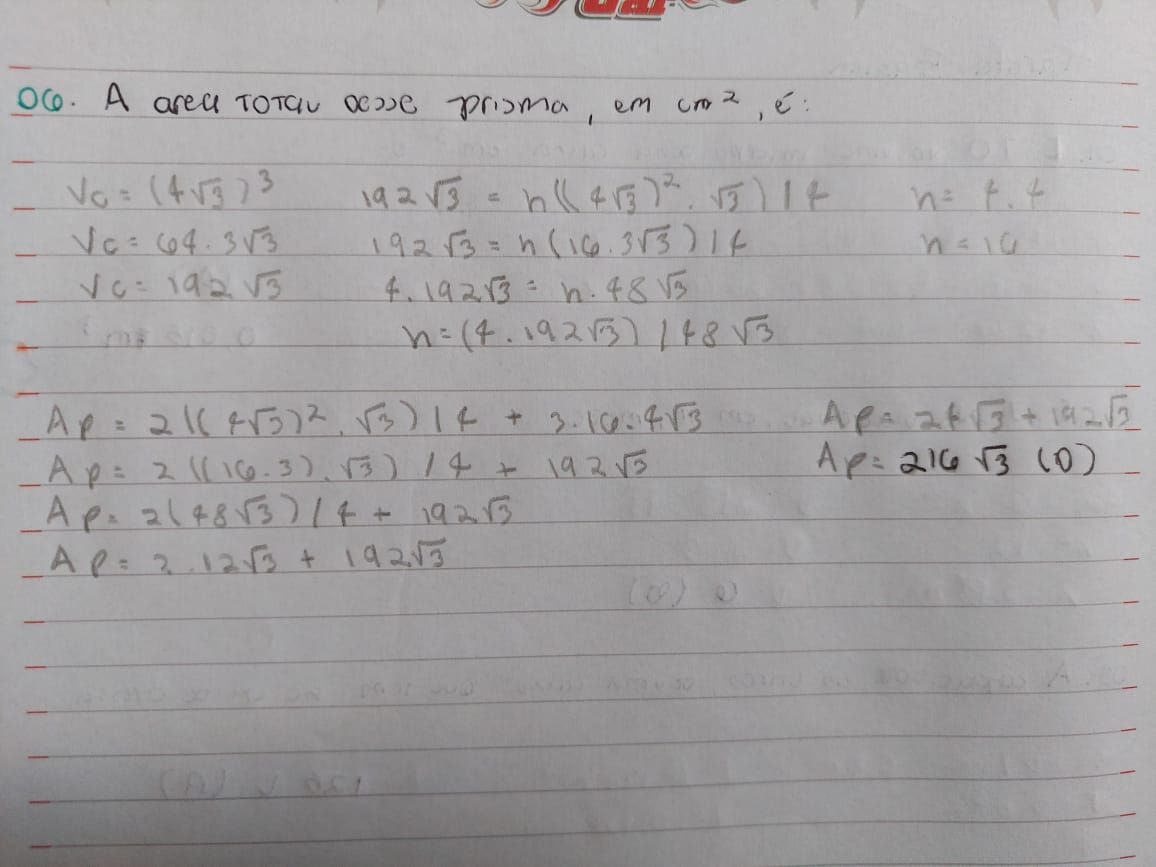 06. A area TOTAL desse prisma, em cm², é:
Vc = (4√3)³
Vc = 64.3√3
Vc = 192√3
192√3 = h((4√3)².√3)/4
192√3 = h(16.3√3)/4
4.192√3 = h.48√3
h = (4.192√3)/48√3
h = 4.4
h = 16
Ap = 2((4√3)².√3)/4 + 3.16.4√3
Ap = 2((16.3).√3)/4 + 192√3
Ap = 2(48√3)/4 + 192√3
Ap = 2.12√3 + 192√3
Ap = 24√3 + 192√3
Ap = 216√3 (D)